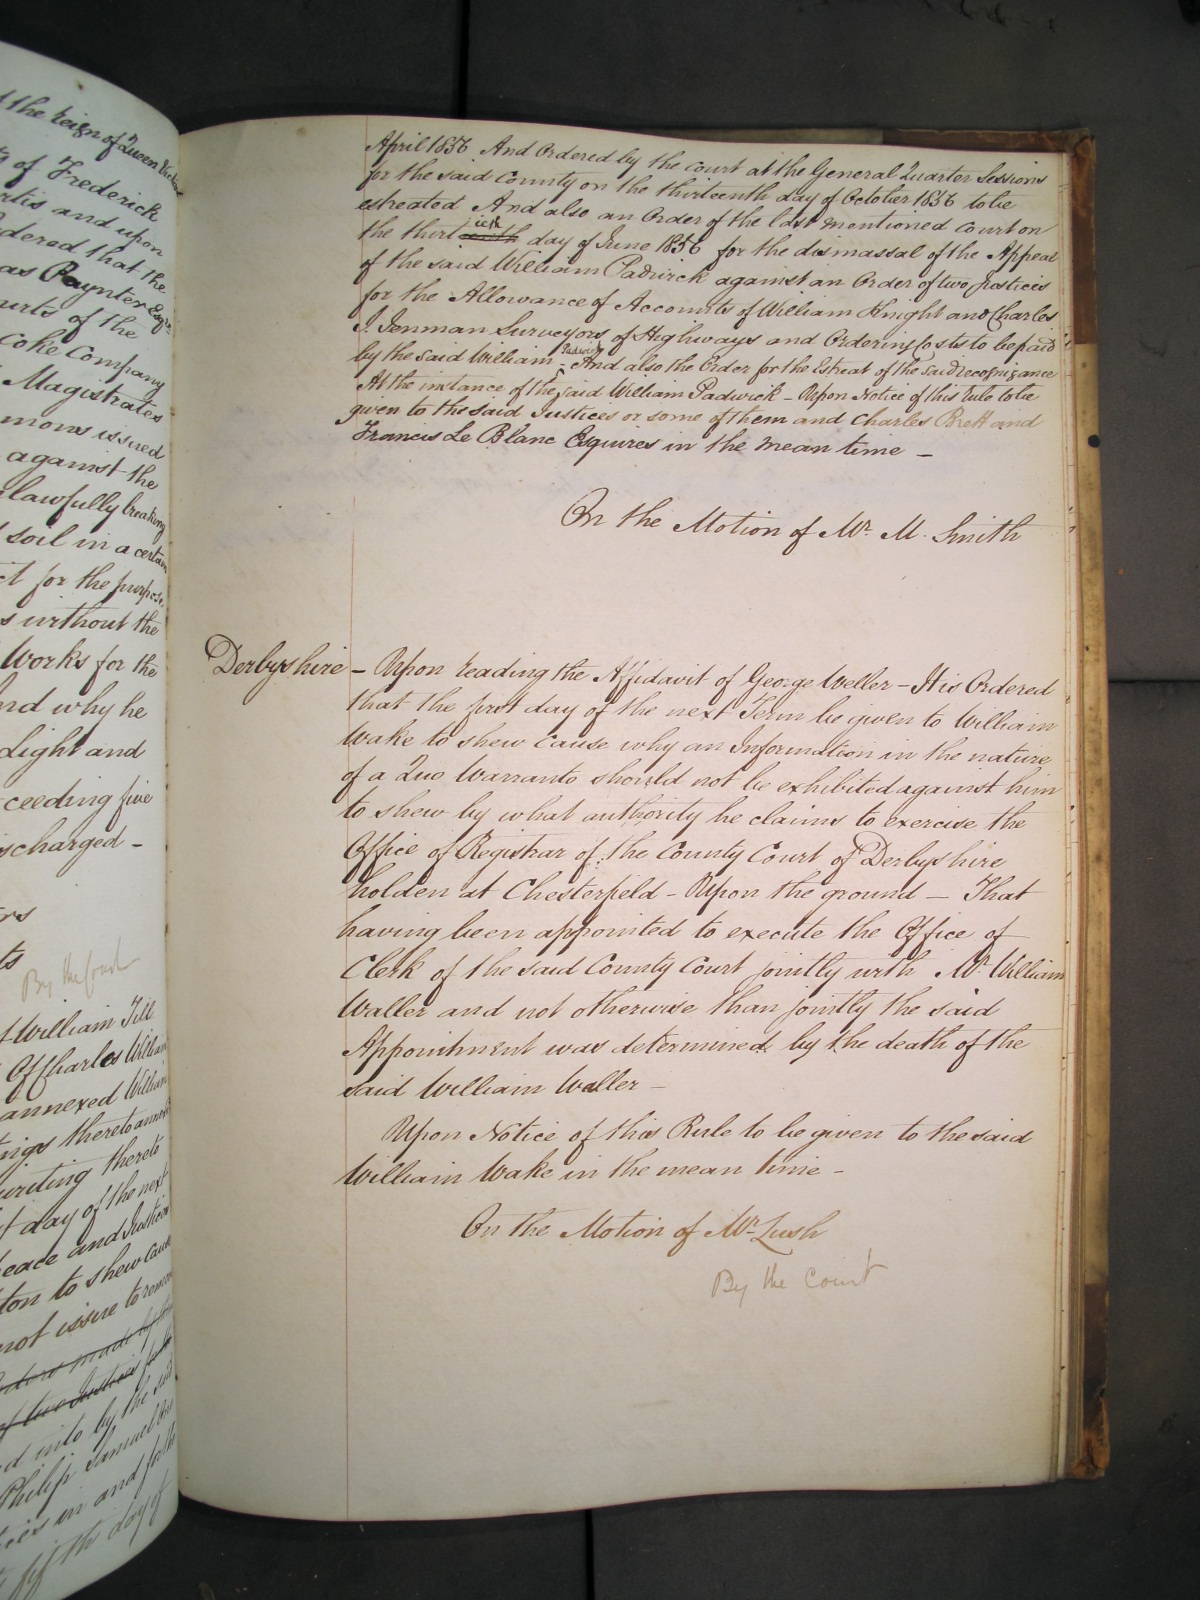 t the reign of Queen
s of Frederick
rtis and upon
dered that the
as Paynter Esqr.
urts of the
Coke Company
Magistrates
mons issued
against the
lawfully breaking
soil in a certain
ct for the purpose
s without the
Works for the
nd why he
Light and
ceeding five
ischarged –
rs
ts
By the Court
f William Till
of Charles William
annexed William
ings thereto annexed
writing thereto
t day of the next
Peace and Justices
ton to shew cause
not issue to remove
orders made by
of two Justices
d into by the said
Philip Samuel
ices in and for the
th day of
April 1856 And Ordered by the Court at the General Quarter Sessions
for the said County on the thirteenth day of October 1856 to be
estreated And also an Order of the last mentioned Court on
the thirtieth day of June 1856 for the dismassal of the Appeal
of the said William Padwick against an Order of two Justices
for the Allowance of Accounts of William Knight and Charles
I. Denman Surveyors of Highways and Ordering Costs to be paid
by the said William Padwick And also the Order for the Estreat of the said recognizance
At the instance of the said William Padwick – Upon Notice of this Rule to be
given to the said Justices or some of them and Charles Brett and
Francis Le Blanc Esquires in the mean time –
On the Motion of Mr. M. Smith
Derbyshire – Upon reading the Affidavit of George Weller – It is Ordered
that the first day of the next Term be given to William
Wake to shew cause why an Information in the nature
of a Quo Warranto should not be exhibited against him
to shew by what authority he claims to exercise the
Office of Registrar of the County Court of Derbyshire
holden at Chesterfield – Upon the ground – That
having been appointed to execute the Office of
Clerk of the said County Court jointly with Mr. William
Waller and not otherwise than jointly the said
Appointment was determined by the death of the
said William Waller –
Upon Notice of this Rule to be given to the said
William Wake in the mean time –
On the Motion of Mr. Lush
By the Court